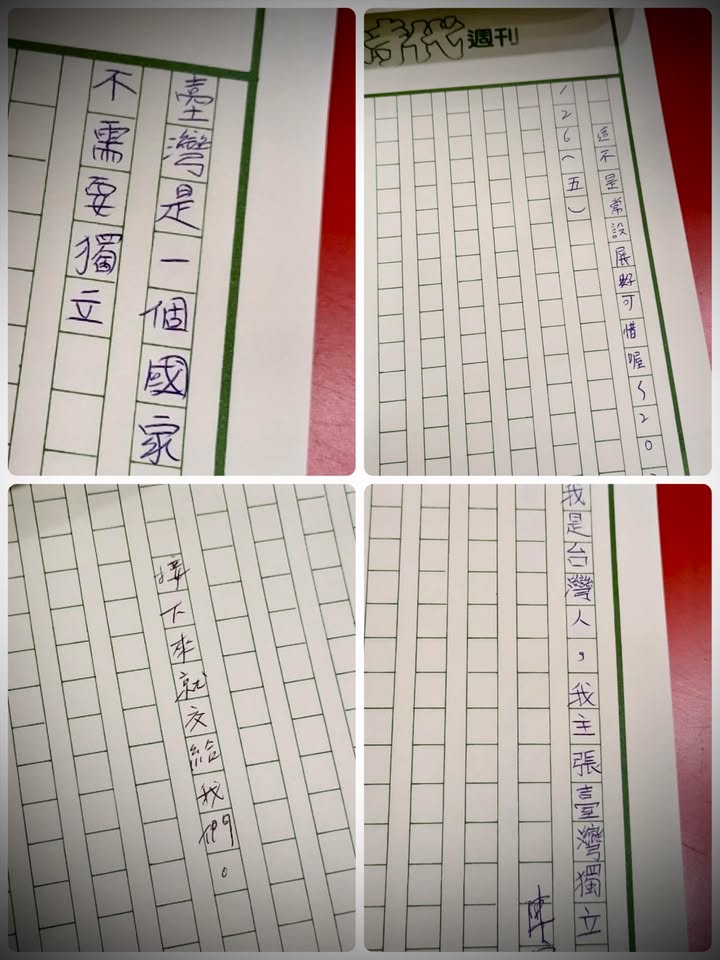 臺灣是一個國家
不需要獨立
時代週刊
這不是常設展好可惜喔~20
/26(五)
接下來就交給我們。
我是台灣人，我主張臺灣獨立
陳